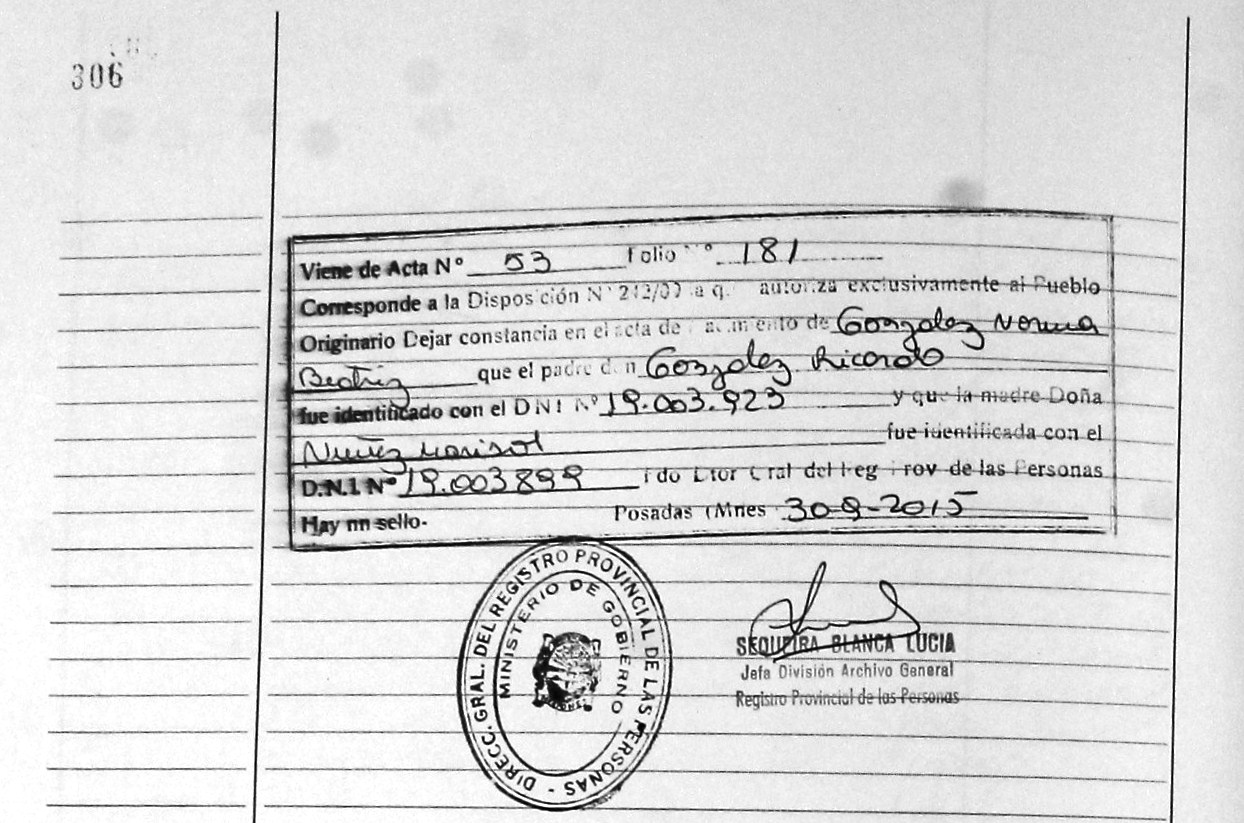 306
Viene de Acta Nº 53 Folio Nº 181
Corresponde a la Disposición Nº 242/07 la que autoriza exclusivamente al Pueblo
Originario Dejar constancia en el acta de nacimiento de Gonzalez Norma
Beatriz que el padre don Gonzalez Ricardo
fue identificado con el DNI Nº 19.003.923 y que la madre Doña
Nuñez Marisol fue identificada con el
D.N.I Nº 19.003899 Fdo Dtor Gral del Reg Prov de las Personas
Hay un sello. Posadas (Mnes 30-9-2015
DIRECC. GRAL. DEL REGISTRO PROVINCIAL DE LAS PERSONAS -
MINISTERIO DE GOBIERNO
SEQUEIRA BLANCA LUCIA
Jefa División Archivo General
Registro Provincial de las Personas